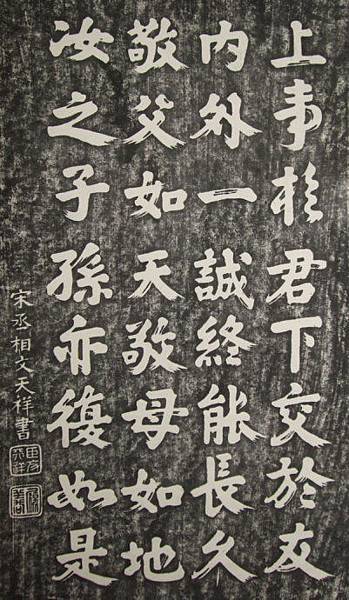 上事於君下交於友
内外一誠終能長久
敬父如天敬母如地
汝之子孫亦復如是
宋丞相文天祥書